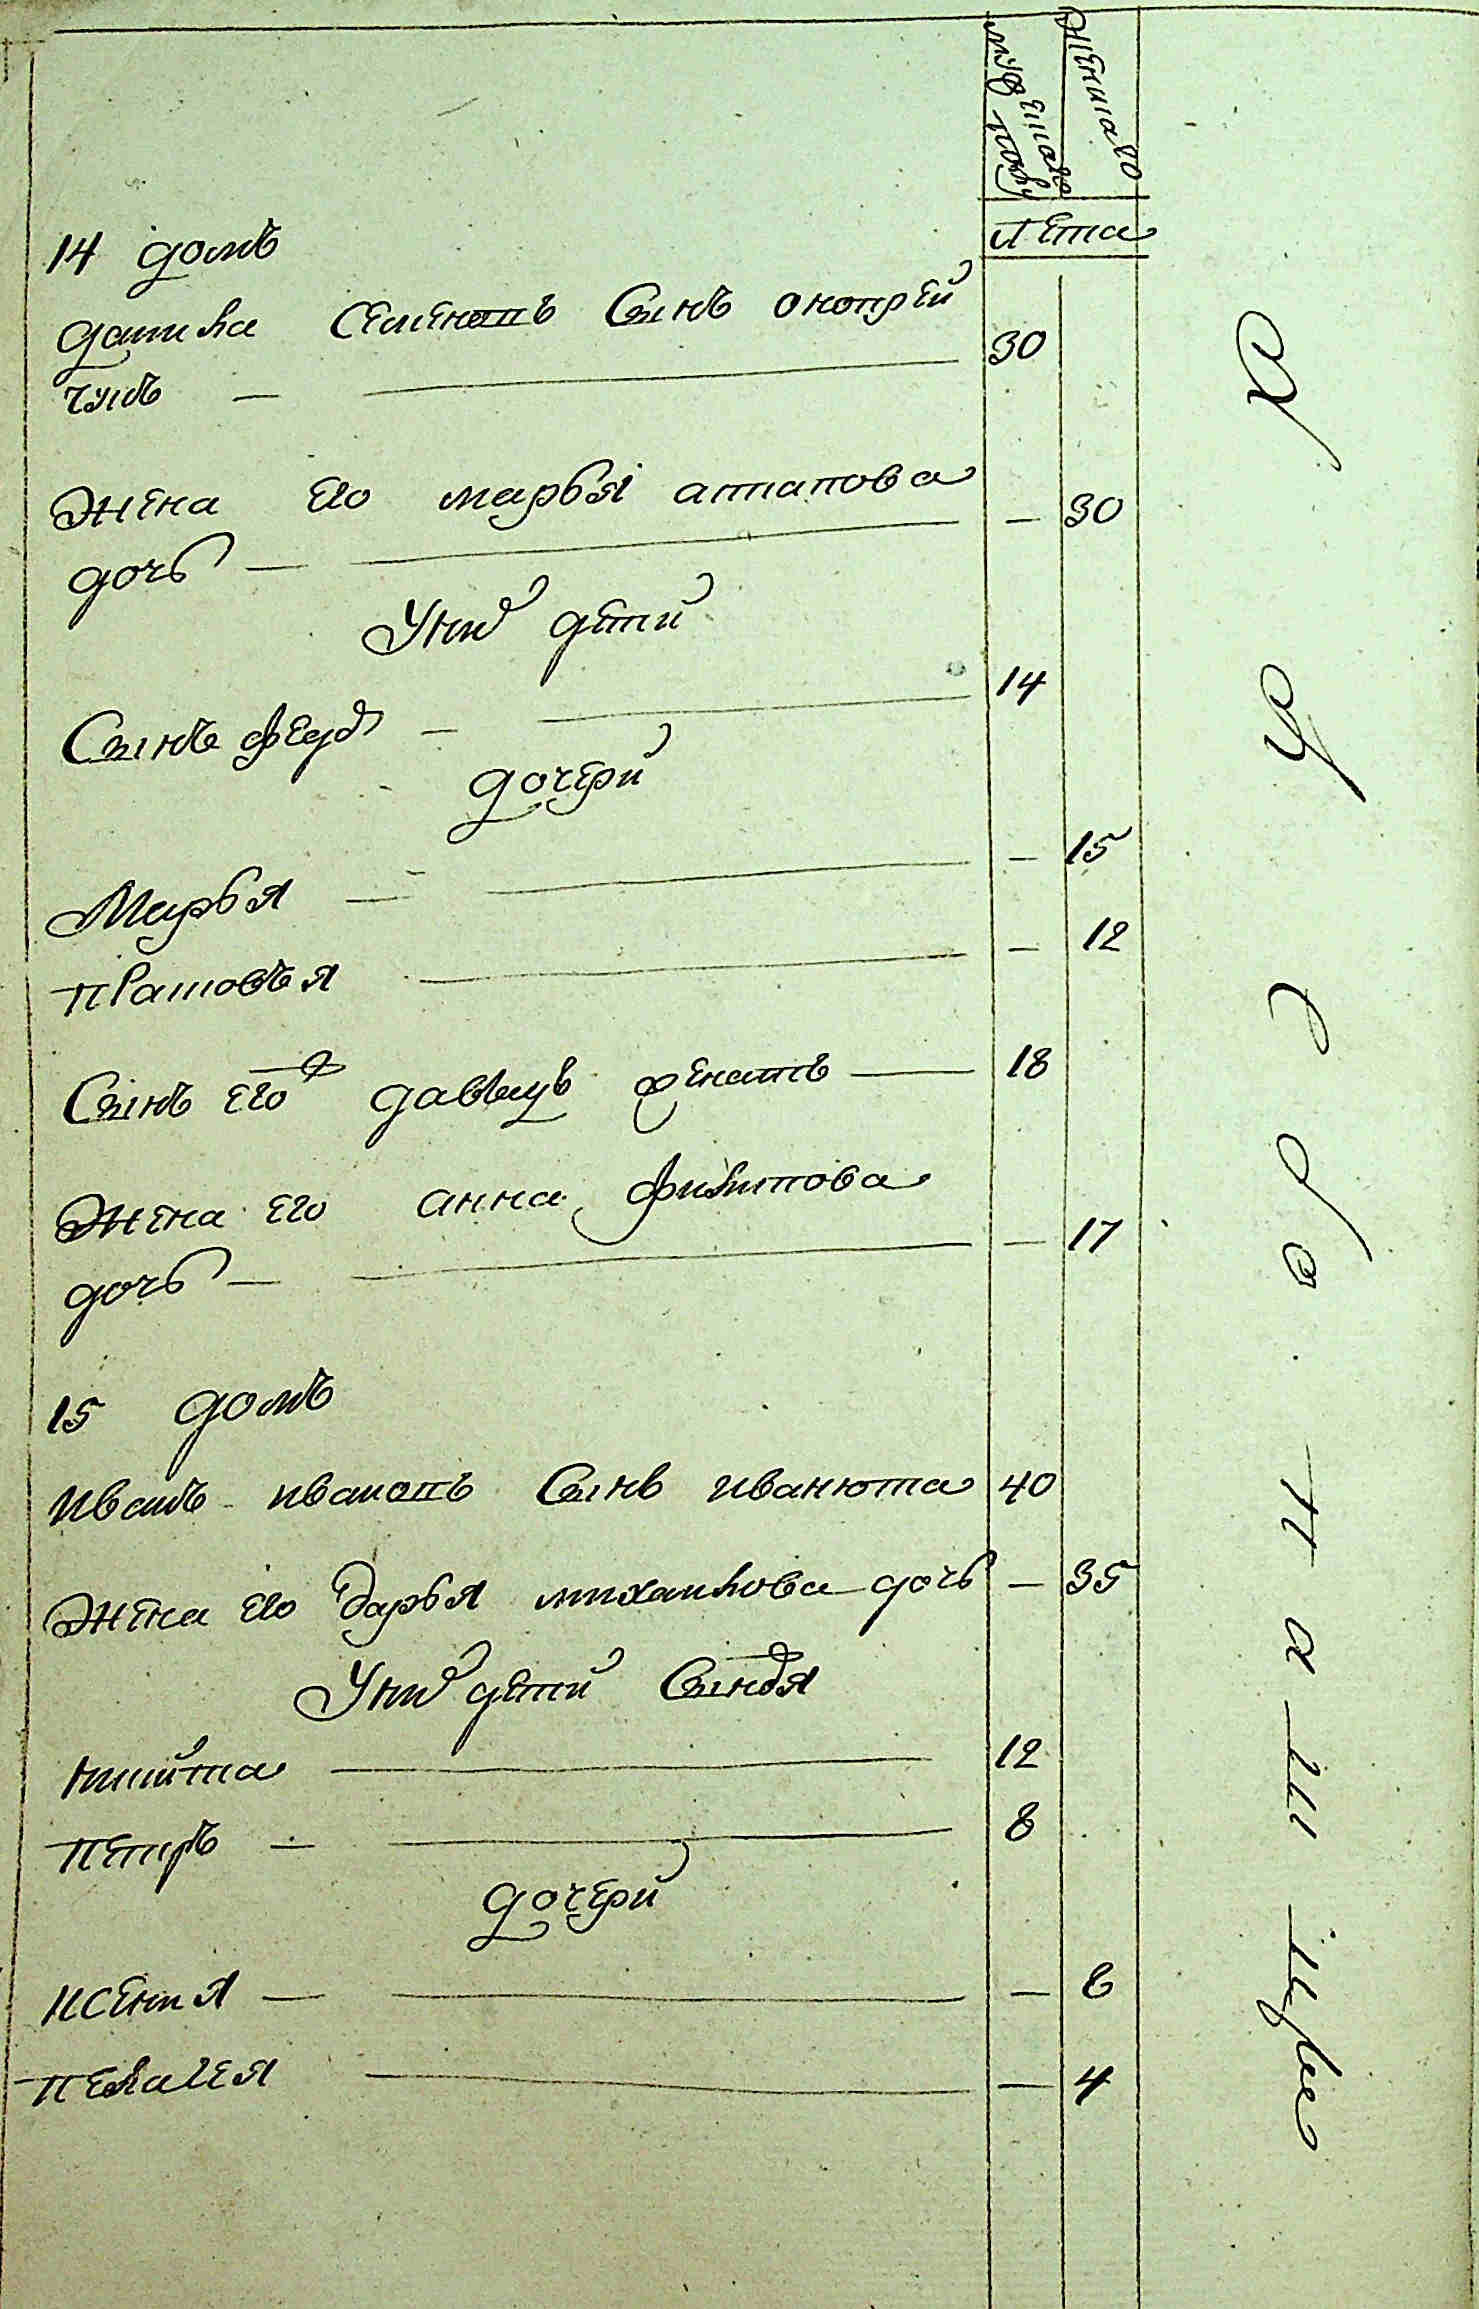 мужеска полу
женска го
лета
14 домъ
данила семеновъ сынъ онопрей
чукъ — 30
жена его марья атапова
дочь — — 30
у них дети
сынъ федор — 14
дочери
Марья — — 15
прасковья — — 12
сынъ его давыдъ женатъ — 18
жена его анна филипова
дочь — — 17
15 домъ
иванъ ивановъ сынъ иванюта 40
жена его дарья михайлова дочь — 35
у них дети сыновья
никита — 12
петръ — 8
дочери
ксения — — 6
пелагея — — 4